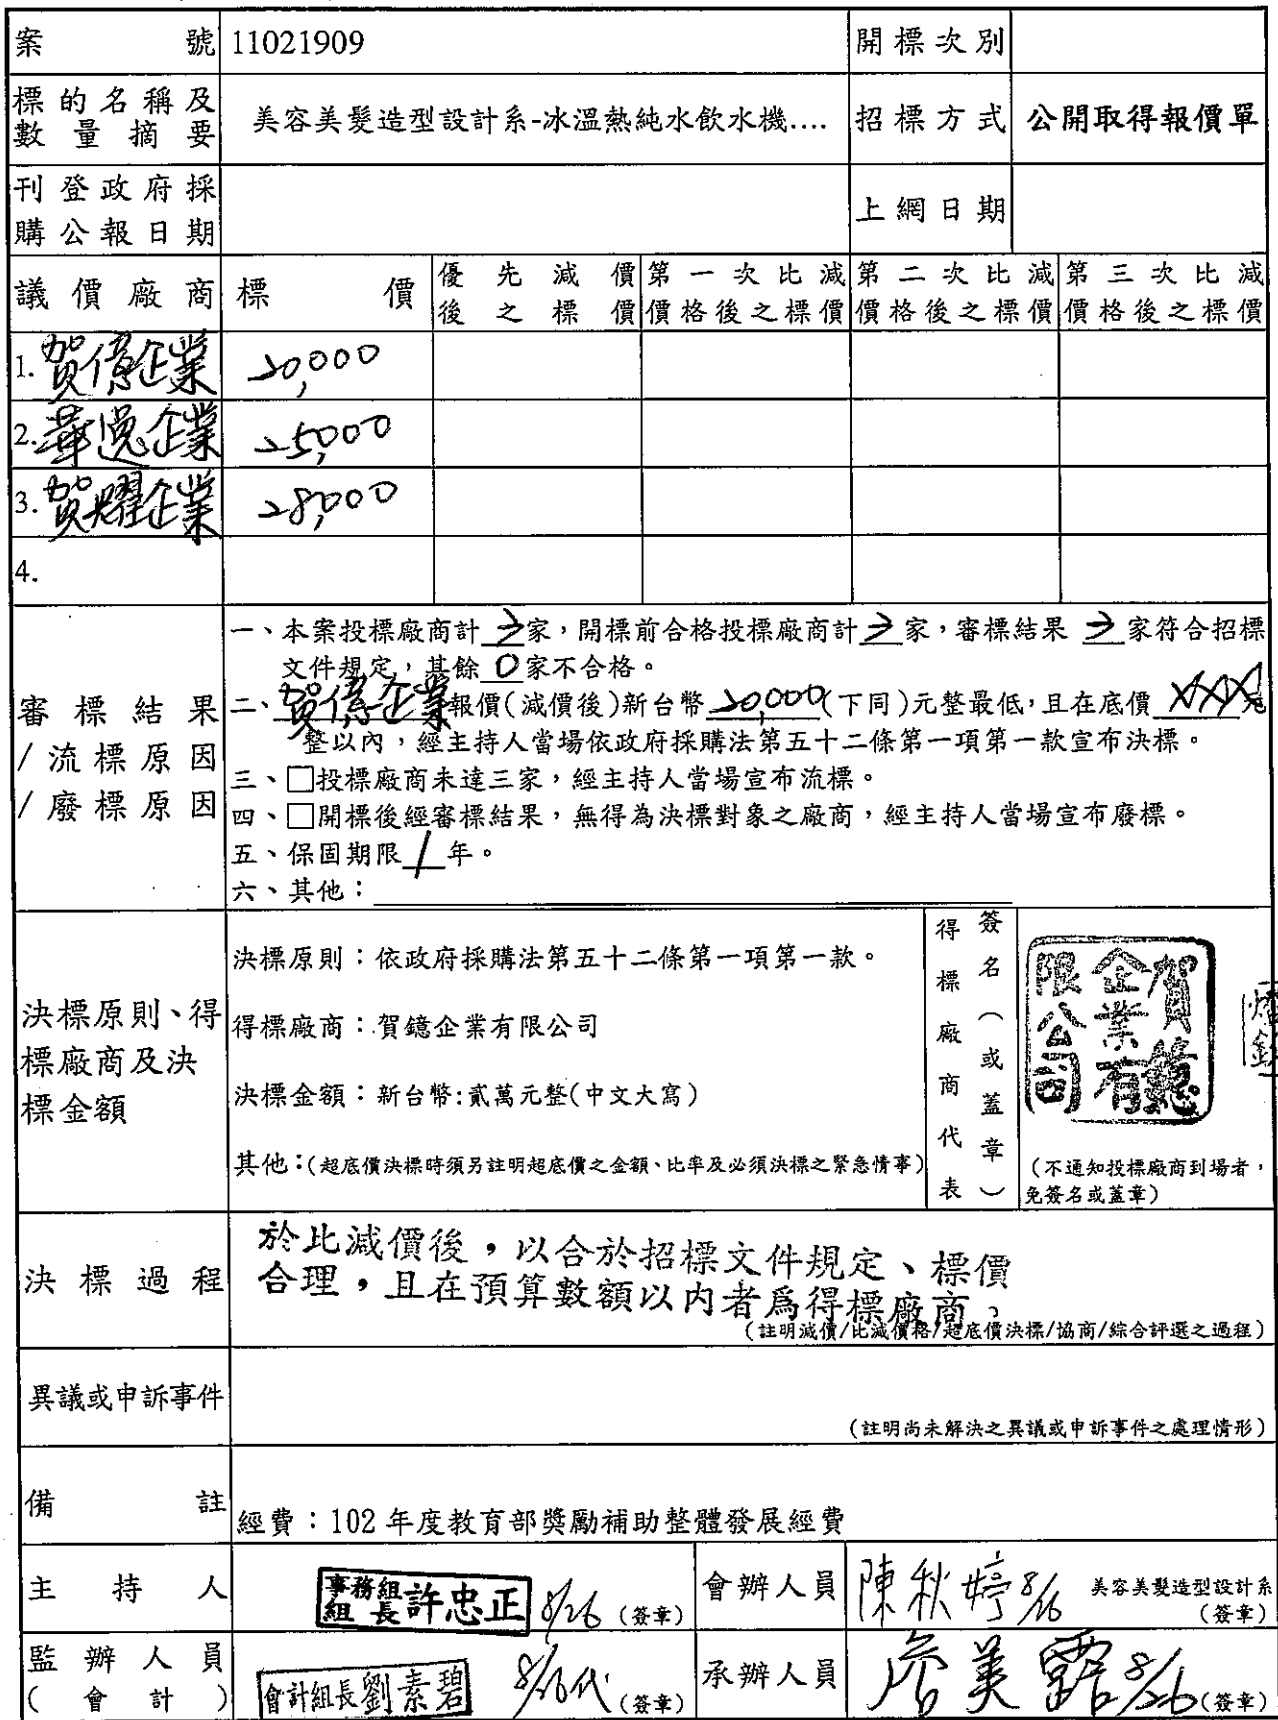 案號 11021909 開標次別
標的名稱及數量摘要 美容美髮造型設計系-冰溫熱純水飲水機.... 招標方式 公開取得報價單
刊登政府採購公報日期 上網日期
議價廠商 標價 優先減價後之標價 第一次比減價格後之標價 第二次比減價格後之標價 第三次比減價格後之標價
1. 賀億企業 20,000
2. 華逸企業 25,000
3. 賀耀企業 28,000
4.
審標結果/流標原因/廢標原因
一、本案投標廠商計 3 家，開標前合格投標廠商計 3 家，審標結果 3 家符合招標
文件規定，其餘 0 家不合格。
二、賀億企業報價(減價後)新台幣 20,000(下同)元整最低，且在底價 XXX 元
整以內，經主持人當場依政府採購法第五十二條第一項第一款宣布決標。
三、□投標廠商未達三家，經主持人當場宣布流標。
四、□開標後經審標結果，無得為決標對象之廠商，經主持人當場宣布廢標。
五、保固期限 1 年。
六、其他：
決標原則、得標廠商及決標金額
決標原則：依政府採購法第五十二條第一項第一款。
得標廠商：賀鐿企業有限公司
決標金額：新台幣:貳萬元整(中文大寫)
其他：(超底價決標時須另註明超底價之金額、比率及必須決標之緊急情事)
得標廠商代表 簽名(或蓋章)
賀鐿企業有限公司
(不通知投標廠商到場者，
免簽名或蓋章)
決標過程
於比減價後，以合於招標文件規定、標價
合理，且在預算數額以內者為得標廠商。
(註明減價/比減價格/超底價決標/協商/綜合評選之過程)
異議或申訴事件
(註明尚未解決之異議或申訴事件之處理情形)
備註 經費：102 年度教育部獎勵補助整體發展經費
主持人 事務組組長 許忠正 8/26 (簽章) 會辦人員 陳秋婷 8/26 美容美髮造型設計系
(簽章)
監辦人員(會計) 會計組長劉素碧 8/26代 (簽章) 承辦人員 詹美露 8/26 (簽章)